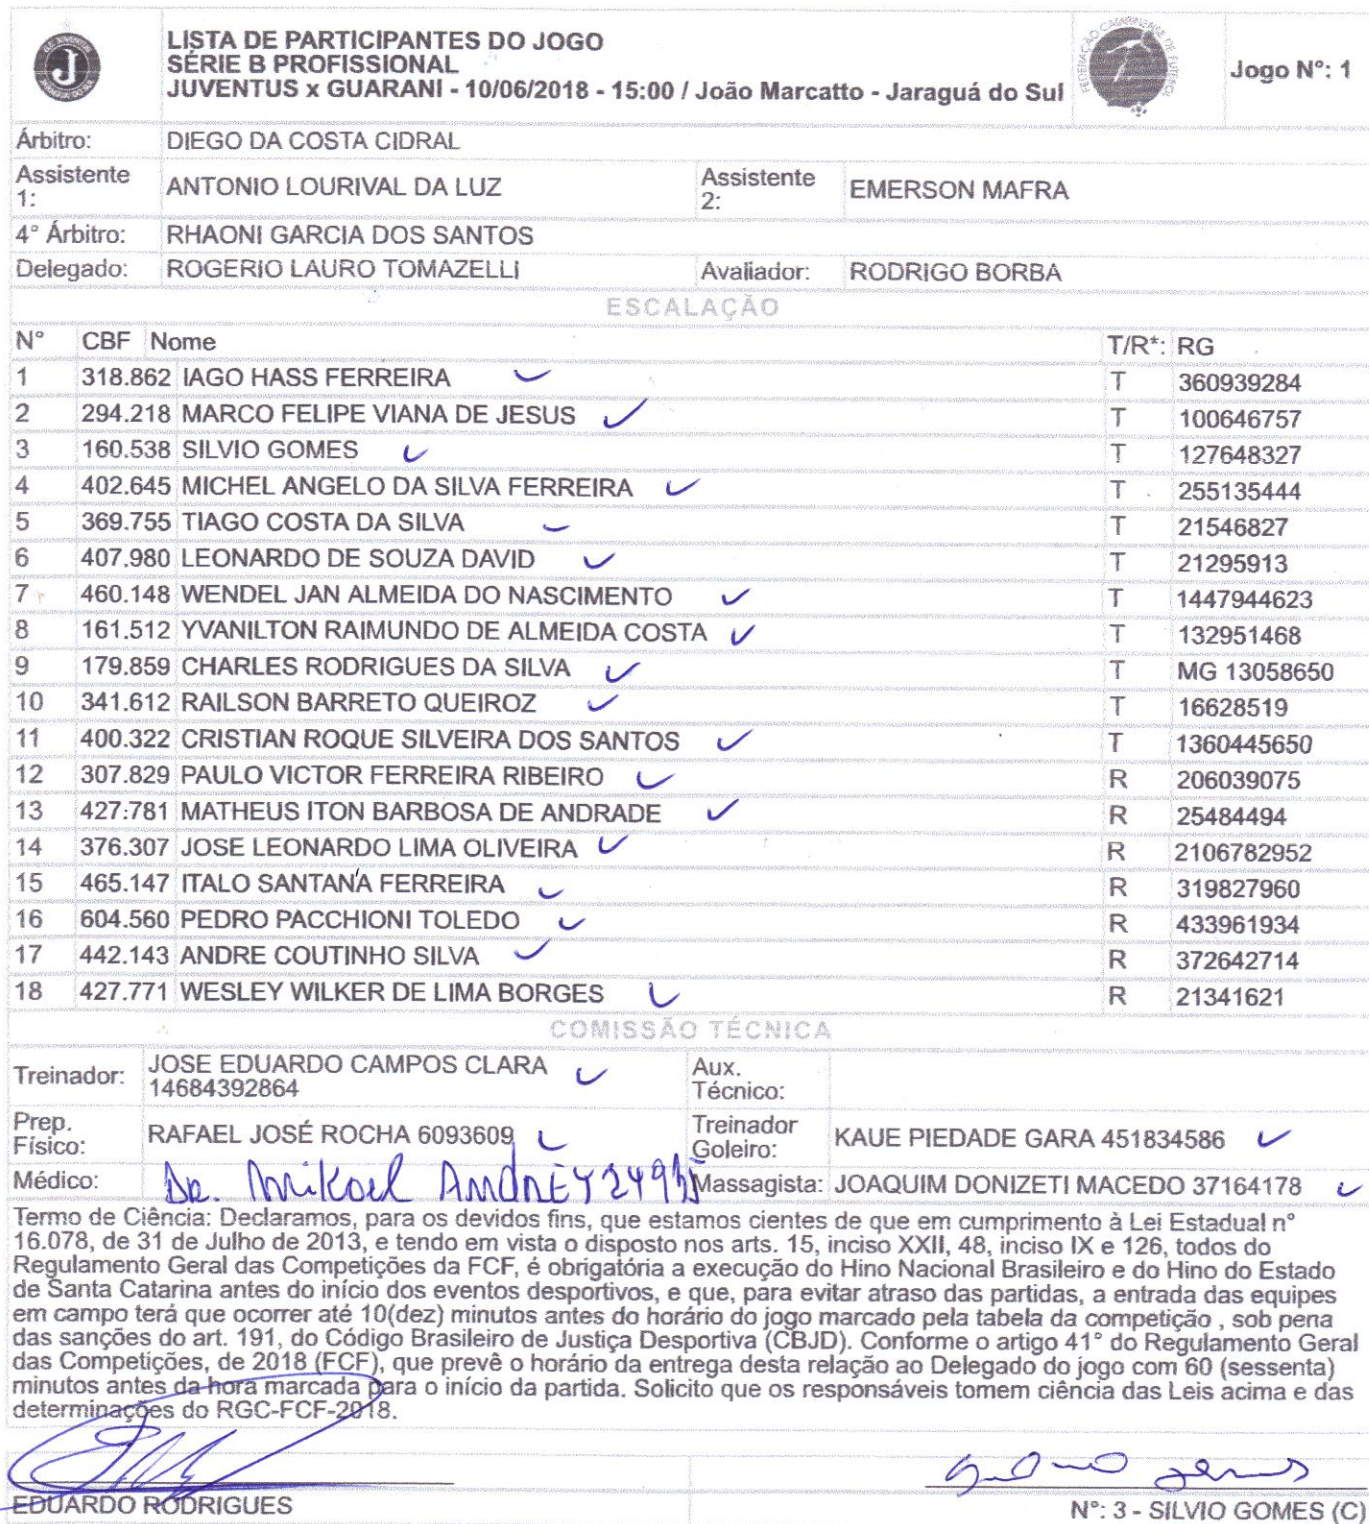 LISTA DE PARTICIPANTES DO JOGO
SÉRIE B PROFISSIONAL
JUVENTUS x GUARANI - 10/06/2018 - 15:00 / João Marcatto - Jaraguá do Sul
FEDERAÇÃO CATARINENSE DE FUTEBOL
Jogo N°: 1
Árbitro: DIEGO DA COSTA CIDRAL
Assistente 1: ANTONIO LOURIVAL DA LUZ Assistente 2: EMERSON MAFRA
4° Árbitro: RHAONI GARCIA DOS SANTOS
Delegado: ROGERIO LAURO TOMAZELLI Avaliador: RODRIGO BORBA
ESCALAÇÃO
N° CBF Nome T/R*: RG
1 318.862 IAGO HASS FERREIRA T 360939284
2 294.218 MARCO FELIPE VIANA DE JESUS T 100646757
3 160.538 SILVIO GOMES T 127648327
4 402.645 MICHEL ANGELO DA SILVA FERREIRA T 255135444
5 369.755 TIAGO COSTA DA SILVA T 21546827
6 407.980 LEONARDO DE SOUZA DAVID T 21295913
7 460.148 WENDEL JAN ALMEIDA DO NASCIMENTO T 1447944623
8 161.512 YVANILTON RAIMUNDO DE ALMEIDA COSTA T 132951468
9 179.859 CHARLES RODRIGUES DA SILVA T MG 13058650
10 341.612 RAILSON BARRETO QUEIROZ T 16628519
11 400.322 CRISTIAN ROQUE SILVEIRA DOS SANTOS T 1360445650
12 307.829 PAULO VICTOR FERREIRA RIBEIRO R 206039075
13 427.781 MATHEUS ITON BARBOSA DE ANDRADE R 25484494
14 376.307 JOSE LEONARDO LIMA OLIVEIRA R 2106782952
15 465.147 ITALO SANTANA FERREIRA R 319827960
16 604.560 PEDRO PACCHIONI TOLEDO R 433961934
17 442.143 ANDRE COUTINHO SILVA R 372642714
18 427.771 WESLEY WILKER DE LIMA BORGES R 21341621
COMISSÃO TÉCNICA
Treinador: JOSE EDUARDO CAMPOS CLARA 14684392864 Aux. Técnico:
Prep. Físico: RAFAEL JOSÉ ROCHA 6093609 Treinador Goleiro: KAUE PIEDADE GARA 451834586
Médico: DR. Mikael ANDREY Massagista: JOAQUIM DONIZETI MACEDO 37164178
Termo de Ciência: Declaramos, para os devidos fins, que estamos cientes de que em cumprimento à Lei Estadual n°
16.078, de 31 de Julho de 2013, e tendo em vista o disposto nos arts. 15, inciso XXII, 48, inciso IX e 126, todos do
Regulamento Geral das Competições da FCF, é obrigatória a execução do Hino Nacional Brasileiro e do Hino do Estado
de Santa Catarina antes do início dos eventos desportivos, e que, para evitar atraso das partidas, a entrada das equipes
em campo terá que ocorrer até 10(dez) minutos antes do horário do jogo marcado pela tabela da competição , sob pena
das sanções do art. 191, do Código Brasileiro de Justiça Desportiva (CBJD). Conforme o artigo 41° do Regulamento Geral
das Competições, de 2018 (FCF), que prevê o horário da entrega desta relação ao Delegado do jogo com 60 (sessenta)
minutos antes da hora marcada para o início da partida. Solicito que os responsáveis tomem ciência das Leis acima e das
determinações do RGC-FCF-2018.
EDUARDO RODRIGUES N°: 3 - SILVIO GOMES (C)